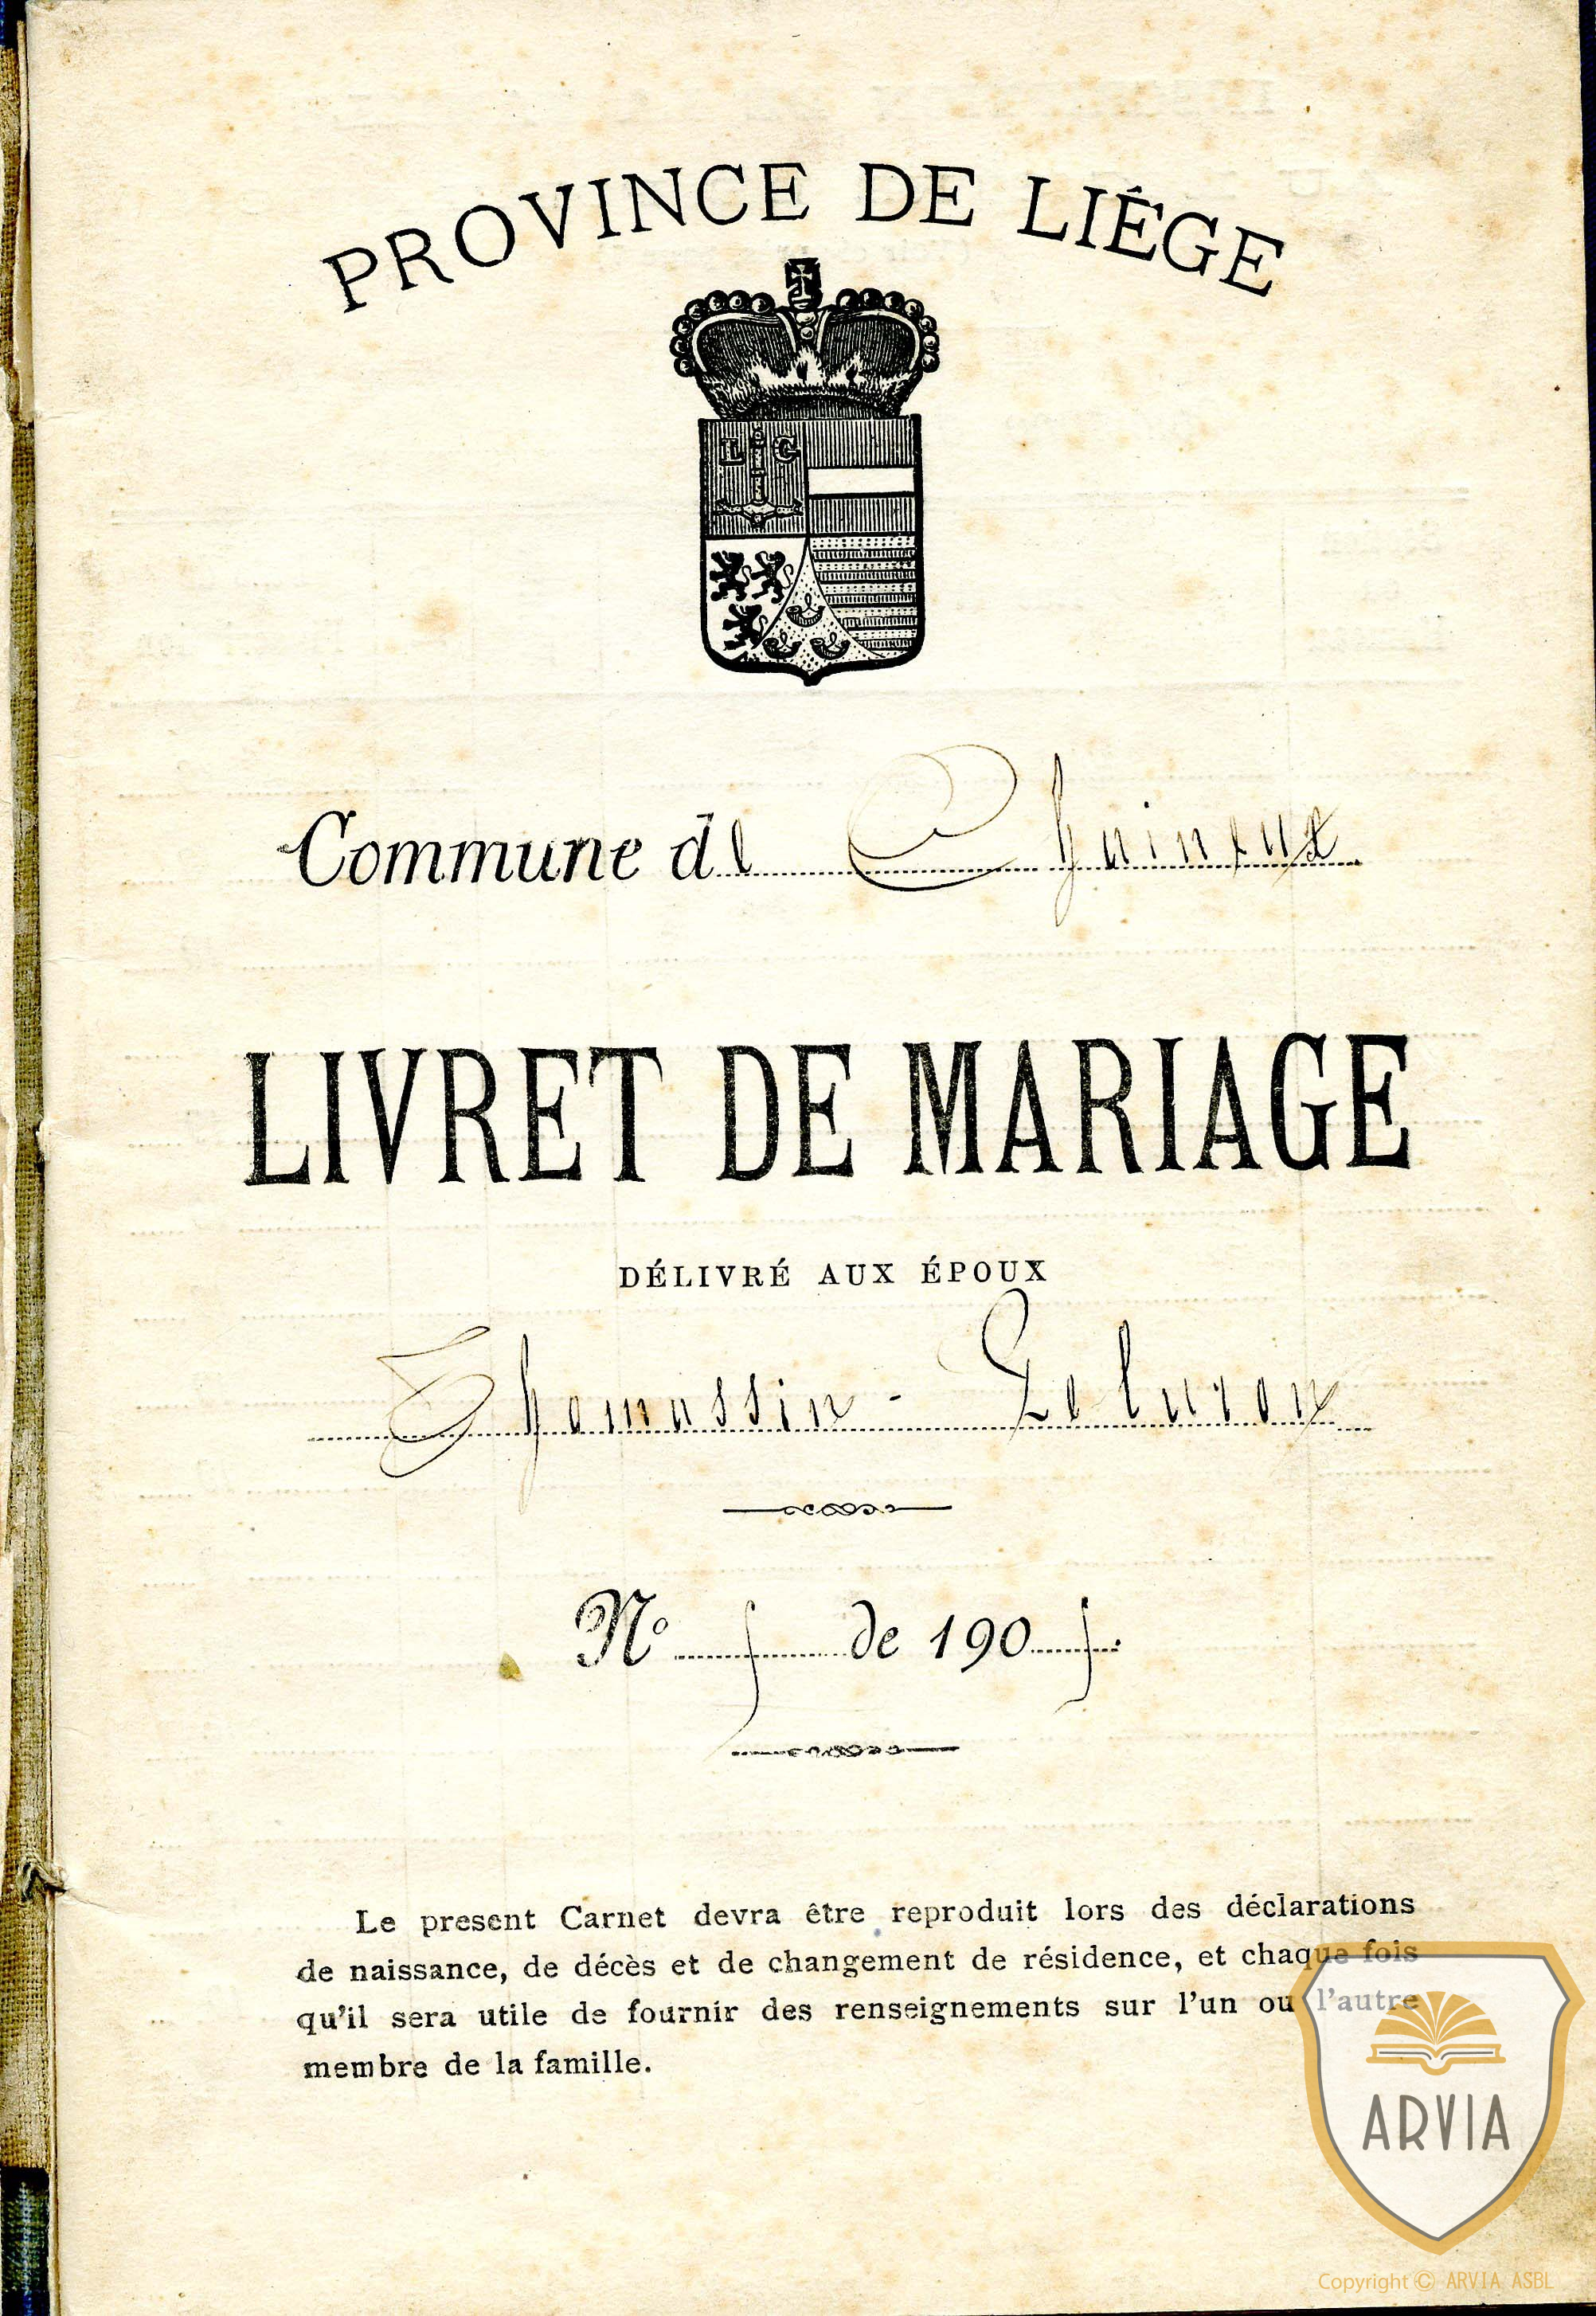 PROVINCE DE LIÉGE
L G
Commune de Chaineux
LIVRET DE MARIAGE
DÉLIVRÉ AUX ÉPOUX
Thomassin -
Nº de 190
Le present Carnet devra être reproduit lors des déclarations
de naissance, de décès et de changement de résidence, et chaque fois
qu'il sera utile de fournir des renseignements sur l'un ou l'autre
membre de la famille.
ARVIA
Copyright © ARVIA ASBL